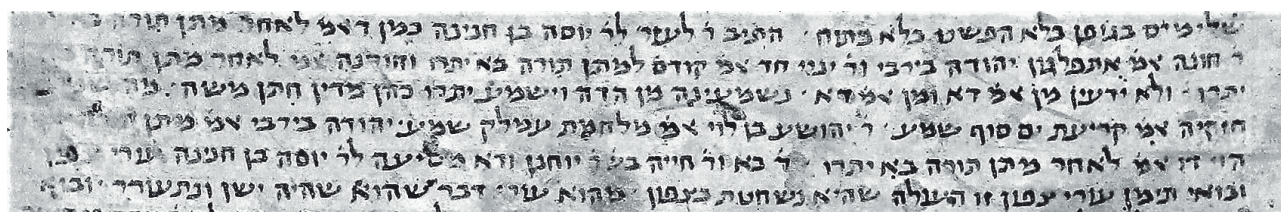 שלימים בגופן בלא הפשט בלא נתוח · התיב ר׳ לעזר לר׳ יוסה בן חנינה כמן דאמ׳ לאחר מתן תורה
ר׳ חונה אמ׳ אתפלגון יהודה בירבי ור׳ ינניי חד אמ׳ קודם למתן תורה בא יתרו וחורנה אמ׳ לאחר מתן תורה
יתרו · ולא ידעין מן אמ׳ דא ומן אמ׳ דא · נשמעינה מן הדה וישמע יתרו כהן מדין חתן משה · מה
חזקיה אמ׳ קריעת ים סוף שמע · ר׳ יהושע בן לוי אמ׳ מלחמת עמלק שמע · יהודה בירבי אמ׳ מיתן
הוי דו אמ׳ לאחר מתן תורה בא יתרו · ר׳ בא ור׳ חייה בש׳ ר׳ יוחנן ודא מסייעה לר׳ יוסה בן חנינה עורי
ובואי תימן עורי צפון זו העולה שהיא נשחטת בצפון · מהוא עורי דבר שהוא שהיה ישן ונתעורר ובואי